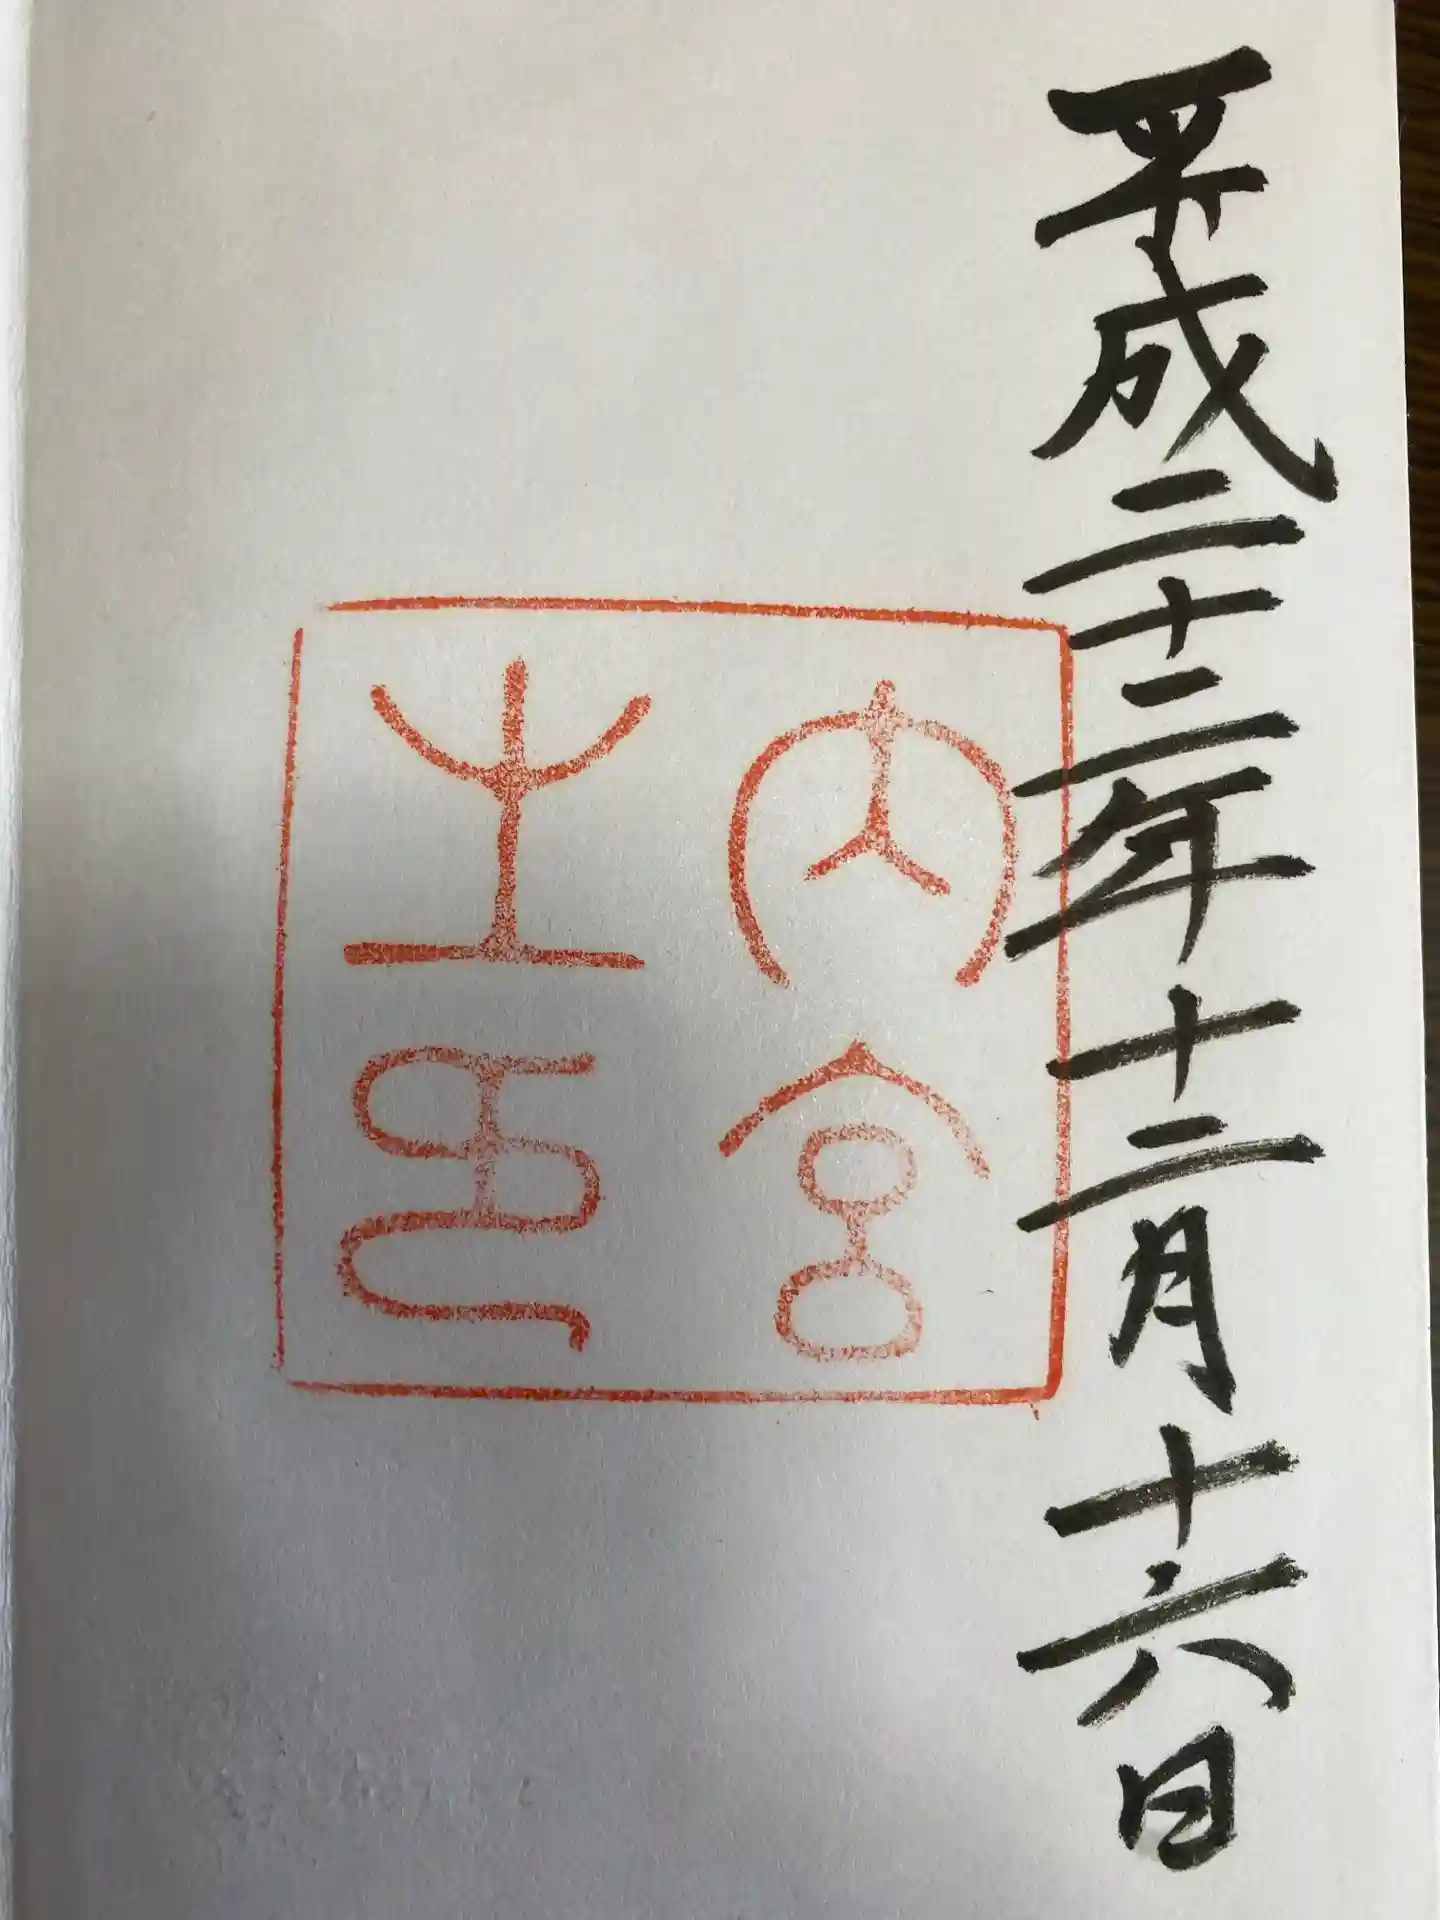 平成二十二年十二月十六日
内宮
之印